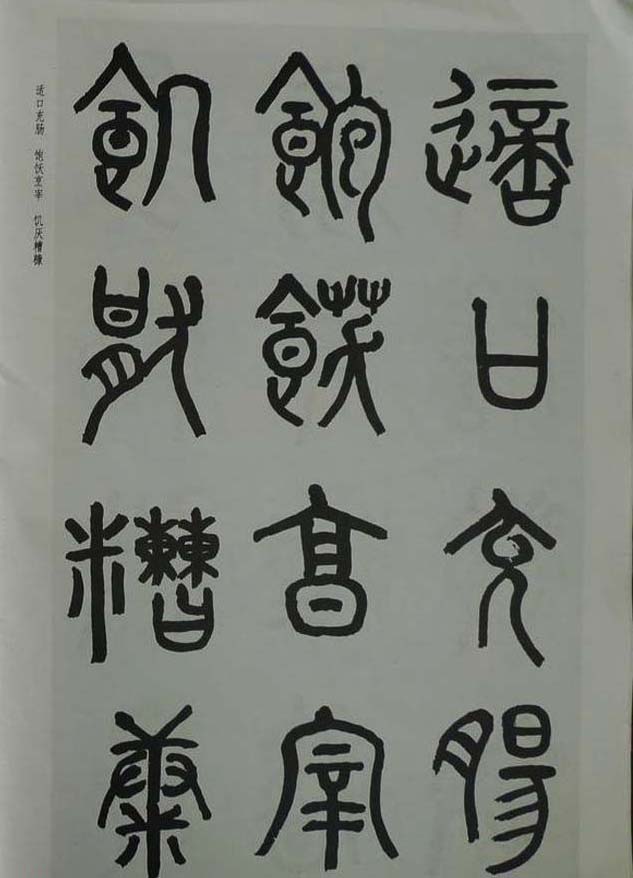 適口充腸
飽飫烹宰
飢猒糟糠
适口充肠 饱饫烹宰 饥厌糟糠